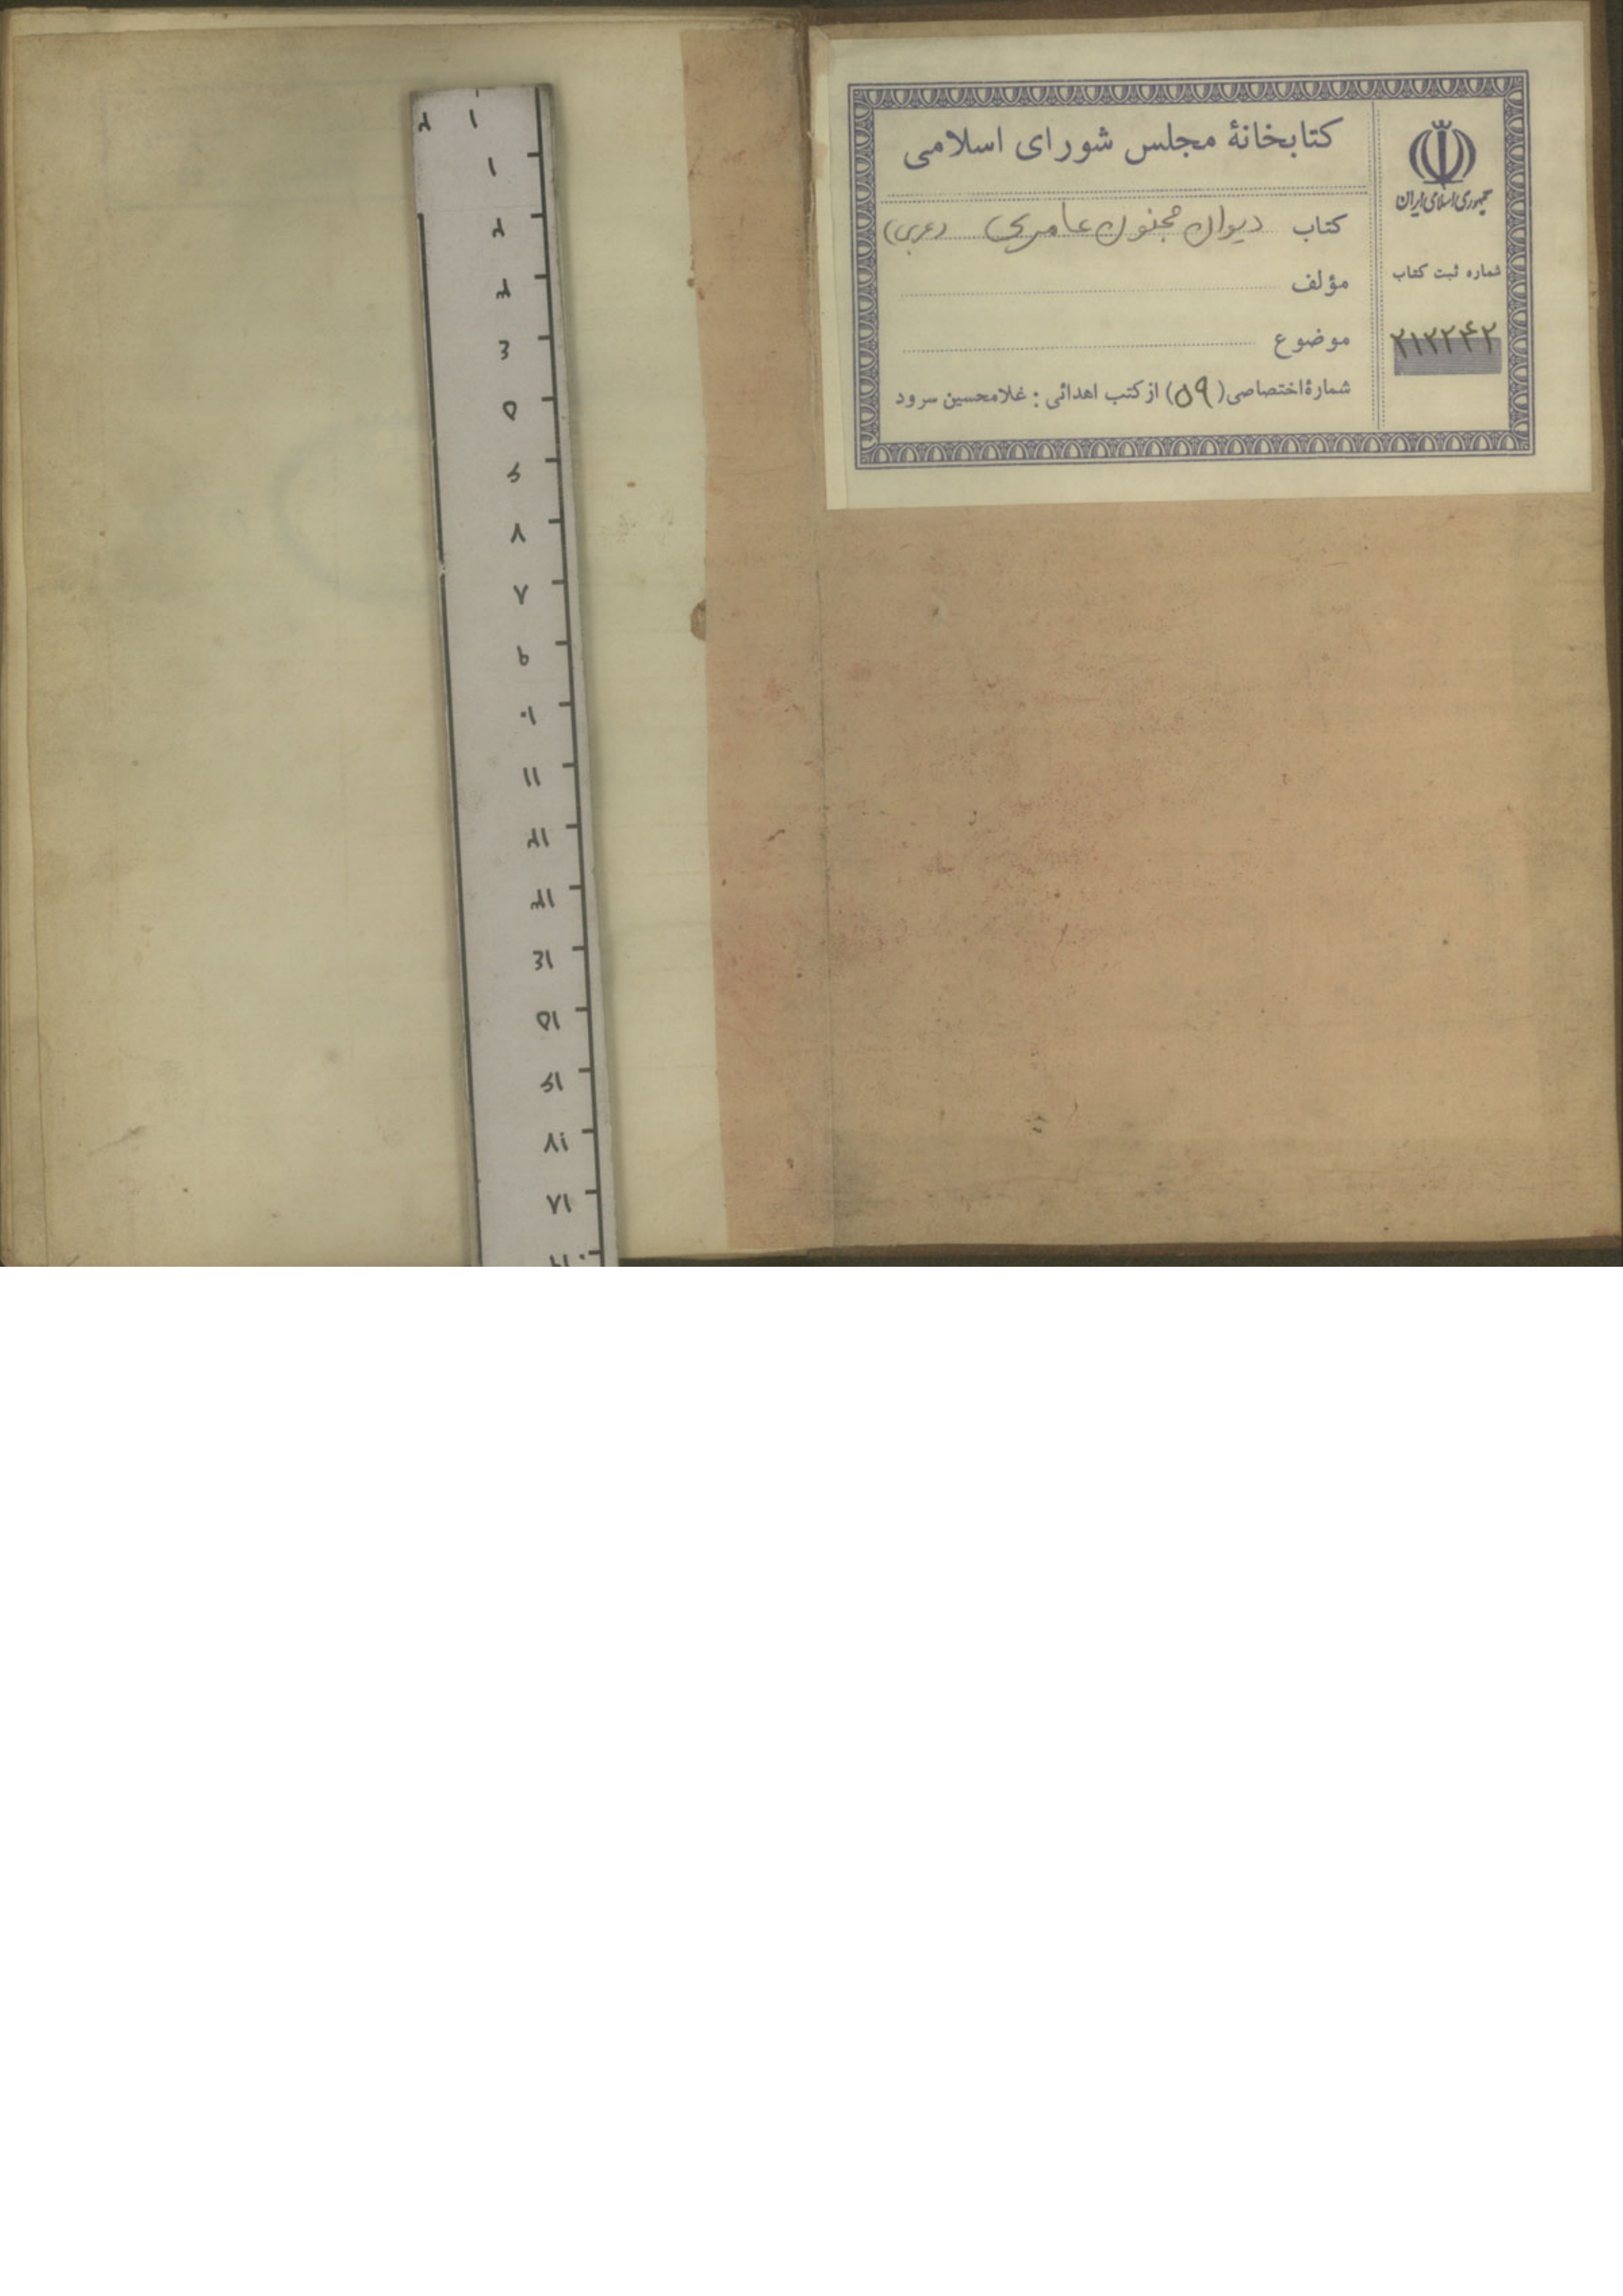 کتابخانهٔ مجلس شورای اسلامی
کتاب دیوان مجنون عامری (عربی)
مؤلف
موضوع
شمارهٔ اختصاصی (۵۹) از کتب اهدائی : غلامحسین سرود
جمهوری اسلامی ایران
شماره ثبت کتاب
۲۱۲۲۴۲